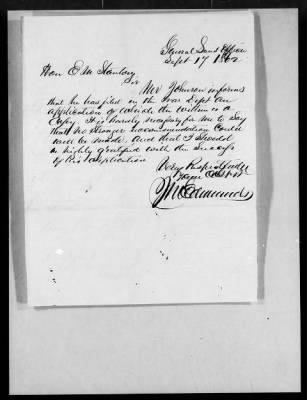 General Land Office
Sept 17 1862
Hon E M Stanton
Sir
Mr Johnson informs
that he has filed in the War Dept an
application of which the within is a
Copy. It is hardly necessary for me to say
that no stronger recommendation could
well be made. And that I should
be highly gratified with the success
of his application
Very Respectfully
Your Obt
J M Edmunds